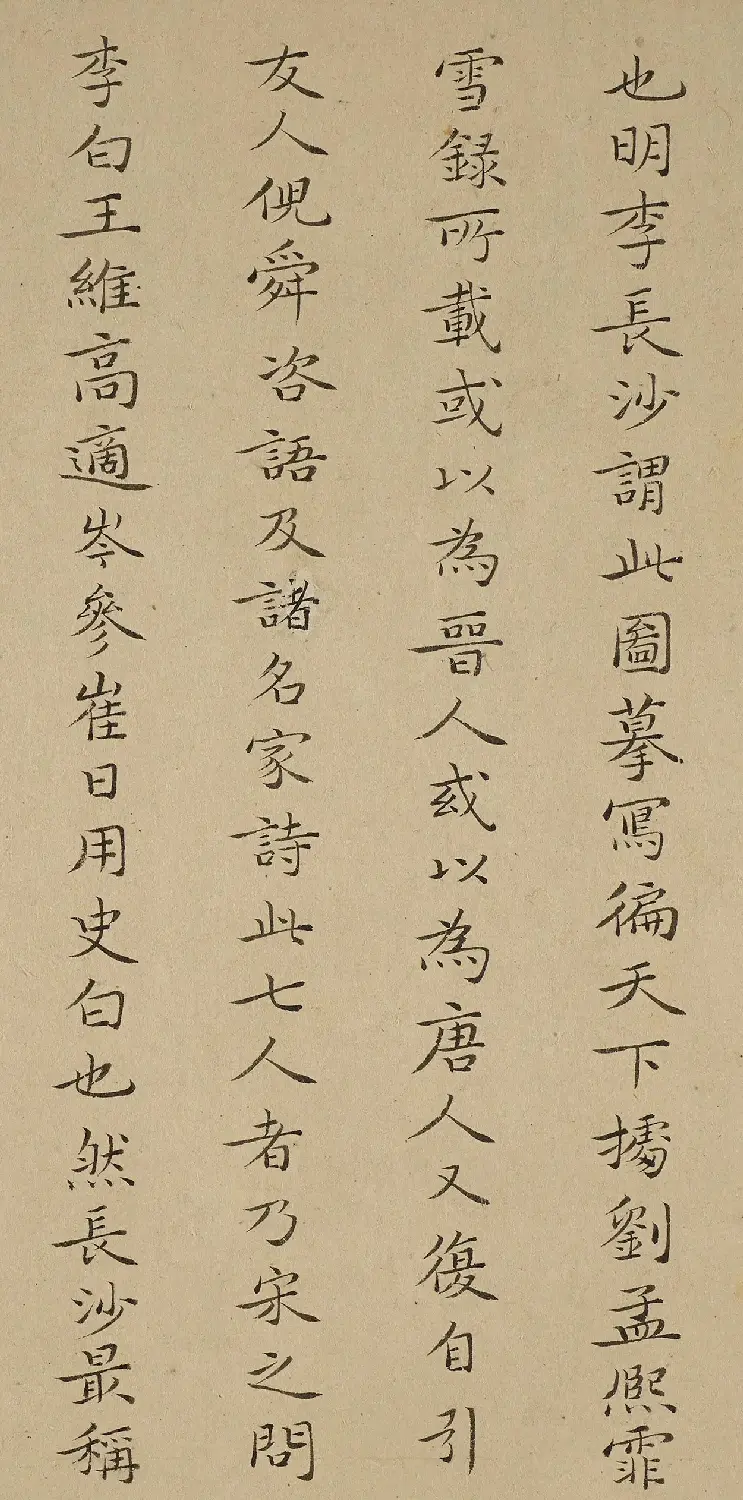 也明李長沙謂此圖摹寫徧天下據劉孟熙霏
雪錄所載或以為晉人或以為唐人又復自引
友人倪舜咨語及諸名家詩此七人者乃宋之問
李白王維高適岑參崔日用史白也然長沙最稱